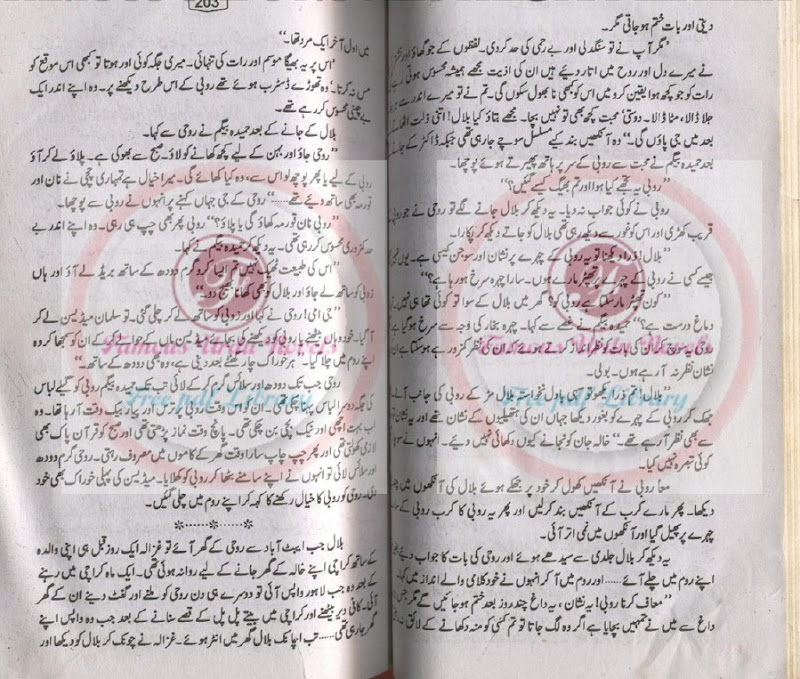 203
دیتی اور بات ختم ہو جاتی مگر۔
”مگر آپ نے تو سنگدلی اور بے رحمی کی حد کر دی۔ لفظوں کے جو گھاؤ اور
نے میرے دل اور روح میں اتار دیئے ہیں ان کی اذیت مجھے ہمیشہ محسوس ہوتی
رات کو جو کچھ ہوا یقین کرو میں اس کو کبھی نا بھول سکوں گی۔ تم نے تو میرے اندر سے
جلا ڈالا، مٹا ڈالا۔ دوستی، محبت کچھ بھی تو نہیں بچا۔ مجھے بتاؤ کیا بلال! اتنی ذلت
بعد میں جی پاؤں گی۔“ وہ آنکھیں بند کیے مسلسل سوچے جا رہی تھی جبکہ ڈاکٹر کے جانے
بعد حمیدہ بیگم نے محبت سے روبی کے سر پر ہاتھ پھیرتے ہوئے پوچھا۔
”روبی یہ تجھے کیا ہوا اور تم بھیگ کیسے گئیں؟“
روبی نے کوئی جواب نہ دیا۔ یہ دیکھ کر بلال جانے لگے تو روحی نے جو روبی
قریب کھڑی اور اس کو غور سے دیکھ رہی تھی بلال کو جاتے دیکھ کر پکارا۔
”بلال! ذرا دیکھنا تو یہ روبی کے چہرے پر نشان اور سوجن کیسی ہے۔ یوں
جیسے کسی نے روبی کے چہرے پر تھپڑ مارے ہوں۔ سارا چہرہ سرخ ہو رہا ہے؟“
”کون تھپڑ مار سکتا ہے روبی کو؟ گھر میں بلال کے سوا تو کوئی تھا ہی نہیں۔
دماغ درست ہے؟“ حمیدہ بیگم نے غصے سے کہا۔ چہرہ بخار کی وجہ سے سرخ ہو گیا ہے
روحی یہ سوچ کر ان کی بات کو نظر انداز کرتے ہوئے ان کی نظر کمزور ہے ہو سکتا ہے ان
نشان نظر نہ آ رہے ہوں۔ بولی۔
”بلال! تم ذرا دیکھو تو آتی بادل نخواستہ بلال مڑ کے روبی کی جانب آئے۔
جھک کر روبی کے چہرے کو بغور دیکھا جہاں ان کی ہتھیلیوں کے نشان تھے اور یہ نشان
سے بھی نظر آ رہے تھے۔“ خالہ جان کو نجانے کیوں دکھائی نہیں دیئے۔ انہوں نے سوچا
کوئی تبصرہ نہیں کیا۔
معاً روبی نے آنکھیں کھول کر خود پر جھکے ہوئے بلال کی آنکھوں میں
دیکھا۔ پھر مارے کرب کے آنکھیں بند کر لیں اور پھر یہ روبی کا کرب روبی کے
چہرے پر پھیل گیا اور آنکھوں میں نمی اتر آئی۔
یہ دیکھ کر بلال جلدی سے سیدھے ہوئے اور روحی کی بات کا جواب دیئے بغیر
اپنے روم میں چلے آئے...... اور روم میں آ کر انہوں نے خود کلامی والے انداز میں کہا۔
”معاف کرنا روبی! یہ نشان، یہ داغ چند روز بعد ختم ہو جائیں گے مگر جس
داغ سے میں نے تمہیں بچایا ہے اگر وہ لگ جاتا تو تم کسی کو منہ دکھانے کے لائق نہ
میں اول آخر ایک مرد تھا۔“
”اس پر یہ بھیگا موسم اور رات کی تنہائی۔ میری جگہ کوئی اور ہوتا تو کبھی اس موقع کو
مس نہ کرتا۔“ وہ تھوڑے ڈسٹرب ہوئے تھے روبی کے اس طرح دیکھنے پر۔ وہ اپنے اندر ایک
بے چینی محسوس کر رہے تھے۔
بلال کے جانے کے بعد حمیدہ بیگم نے روحی سے کہا۔
”روحی جاؤ اور بہن کے لیے کچھ کھانے کو لاؤ۔ صبح سے بھوکی ہے۔ پلاؤ لے کر آؤ
روبی کے لیے یا پھر پوچھ لو اس سے، وہ کیا کھائے گی۔ میرا خیال ہے تمہاری چچی نے نان اور
قورمہ بھی ساتھ دیئے تھے......“ روحی کے جی جہاں کہنے پر انہوں نے روبی سے پوچھا۔
”روبی نان قورمہ کھاؤ گی یا پلاؤ؟“ روبی پھر بھی چپ ہی رہی۔ وہ اپنے اندر بے
حد کمزوری محسوس کر رہی تھی۔ یہ دیکھ کر حمیدہ بیگم نے کہا۔
”اس کی طبیعت ٹھیک نہیں تم ایسا کرو گرم دودھ کے ساتھ بریڈ لے آؤ اور ہاں
زوبی کو ساتھ لے جاؤ اور بلال کو بھی کھانا بھیج دو۔“
”جی امی! روحی نے کہا اور زوبی کو ساتھ لے کر چلی گئی۔ تو سلمان میڈیسن لے کر
آ گیا۔ خود وہاں بیٹھنے یا روبی کو دیکھنے کی بجائے میڈیسن ماں کے حوالے کر کے ان کو سمجھا کر وہ
اپنے روم میں چلا گیا۔ ”ہر خوراک چار گھنٹے بعد دینی ہے، وہ بھی دودھ کے ساتھ۔“
روحی جب تک دودھ اور سلائس گرم کر کے لائی تب تک حمیدہ بیگم روبی کو گیلے لباس
کی جگہ دوسرا لباس پہنا چکی تھی۔ ان کو اس وقت روبی پر ترس اور پیار بیک وقت آ رہا تھا۔ وہ
اب بہت اچھی اور نیک بچی بن چکی تھی۔ پانچ وقت نماز پڑھتی تھی اور صبح کو قرآن پاک بھی
لازمی کھولتی تھی اور پھر چپ چاپ سارا وقت گھر کے کاموں میں مصروف رہتی۔ روحی گرم دودھ
اور سلائس لائی تو انہوں نے اپنے سامنے بٹھا کر روبی کو کھلایا۔ میڈیسن کی پہلی خوراک بھی خود
دی۔ روحی کو روبی کا خیال رکھنے کا کہہ کر اپنے روم میں چلی گئیں۔
※......※......※
بلال جب ایبٹ آباد سے روحی کے گھر آئے تو غزالہ ایک روز قبل ہی اپنی والدہ
کے ساتھ کراچی اپنے خالہ کے گھر جانے کے لیے روانہ ہوئی تھی۔ ایک ماہ کراچی میں رہنے
کے بعد وہ جب لاہور واپس آئی تو دوسرے ہی دن روحی کو ملنے اور گفٹ دینے ان کے گھر
آئی۔ کافی دیر بیٹھنے اور کراچی میں بیتے پل پل کے قصے سنانے کے بعد جب وہ واپس اپنے
گھر جا رہی تھی...... تب اچانک بلال گھر میں انٹر ہوئے۔ غزالہ نے چونک کر بلال کو دیکھا اور
Famous Urdu Novels
Free pdf Library
Famous Urdu Novels
Free pdf Library